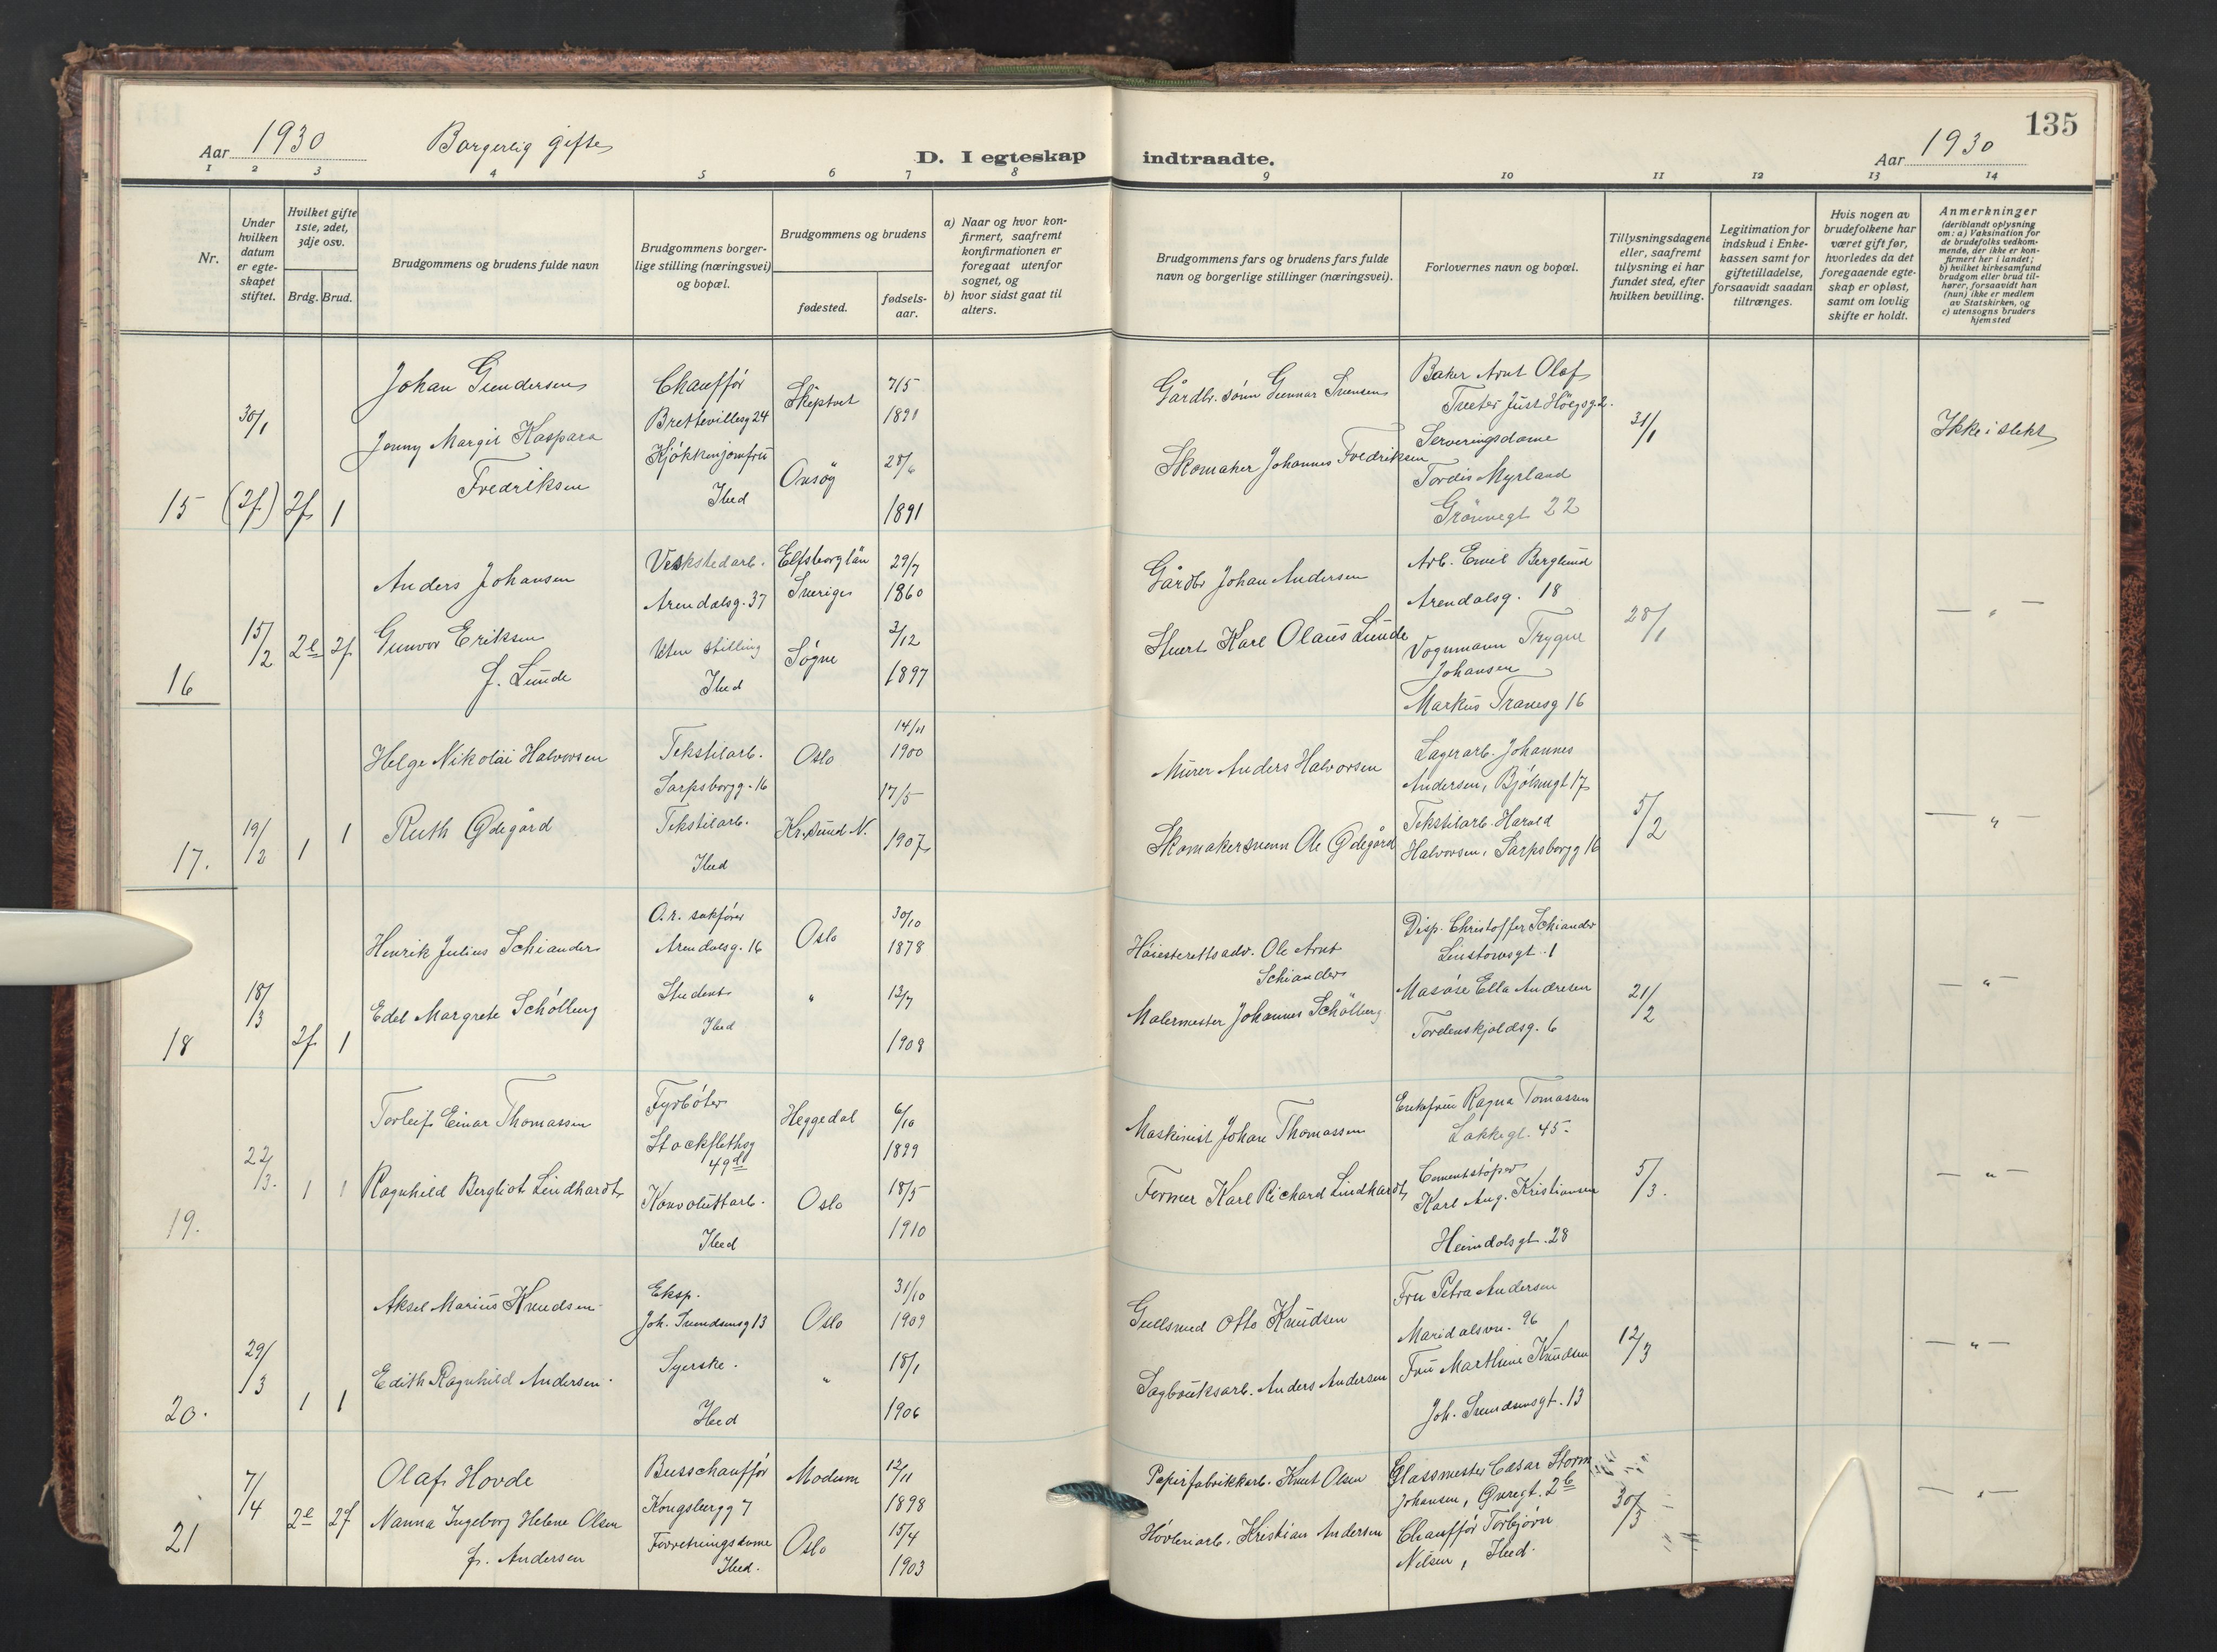 135
Aar 1930 Borgerlig gifte D. I egteskap indtraadte. Aar 1930
1 2 3 4 5 6 7 8 9 10 11 12 13 14
Nr.
Under hvilken datum er egteskapet stiftet.
Hvilket gifte 1ste, 2det, 3dje osv.
Brdg. Brud.
Brudgommens og brudens fulde navn
Brudgommens borgerlige stilling (næringsvei) og bopæl.
Brudgommens og brudens
fødested.
fødselsaar.
a) Naar og hvor konfirmert, saafremt konfirmationen er foregaat utenfor sognet, og
b) hvor sidst gaat til alters.
Brudgommens fars og brudens fars fulde navn og borgerlige stillinger (næringsvei).
Forlovernes navn og bopæl.
Tillysningsdagene eller, saafremt tillysning ei har fundet sted, efter hvilken bevilling.
Legitimation for indskud i Enkekassen samt for giftetilladelse, forsaavidt saadan tiltrænges.
Hvis nogen av brudefolkene har været gift før, hvorledes da det foregaaende egteskap er opløst, samt om lovlig skifte er holdt.
Anmerkninger
(deriblandt oplysning om: a) Vaksination for de brudefolks vedkommende, der ikke er konfirmert her i landet; b) hvilket kirkesamfund brudgom eller brud tilhører, forsaavidt han (hun) ikke er medlem av Statskirken, og c) utensogns bruders hjemsted
15 30/1 (2f.) 2f. 1
Johan Gundersen
Jenny Margit Kaspara
Fredriksen
Chauffør
Brettevillesg 24
Kjøkkenjomfru
Ibed
Skeptvet
7/5
1891
Onsøy
28/6
1891
Gårdbr. sønn Gunnar Svensen
Skomaker Johannes Fredriksen
Baker Arnt Olaf
Treeter Just Høegsg. 2.
Serveringsdame
Tordis Myrland
Grønnegt 22
31/1
Ikke i slekt
16 15/2 2e 2f
Anders Johansen
Gunvor Eriksen
f. Lunde
Verkstedarb.
Arendalsg. 37
Uten stilling
Ibed
Elfsborg län
Sverige
29/7
1860
Søgne
3/12
1897
Gårdbr Johan Andersen
Stuert Karl Olaus Lunde
Arb. Emil Berglund
Arendalsg. 18
Vognmann Trygve
Johansen
Markus Tranesg 16
28/1
— „ —
17. 19/2 1 1
Helge Nikolai Halvorsen
Ruth Ødegård
Tekstilarb.
Sarpsborgg. 16
Tekstilarb.
Ibed
Oslo
14/11
1900
Kr.sund N.
17/5
1907
Murer Anders Halvorsen
Skomakersvenn Ole Ødegård
Lagerarb. Johannes
Andersen, Bjølsengt 17
Tekstilarb. Harald
Halvorsen, Sarpsborgg 16
5/2
— „ —
18 18/3 2f 1
Henrik Julius Schiander
Edel Margrete Schølberg
O.r. sakfører
Arendalsg. 16
Student
Ibed
Oslo
30/10
1878
„
13/7
1908
Høiesterettsadv. Ole Arnt
Schiander
Malermester Johannes Schølberg
Disp. Christoffer Schiander
Linstowsgt. 1
Masøse Ella Andresen
Tordenskjoldsg. 6
21/2
— „ —
19. 22/3. 1 1
Torleif Einar Thomassen
Ragnhild Bergliot Lindhardt
Fyrbøter
Stockflethsg
49d
Konvoluttarb.
Ibed
Heggedal
6/10
1899
Oslo
18/5
1910
Maskinist Johan Thomassen
Former Karl Richard Lindhardt
Enkefru Ragna Tomassen
Lakkegt. 45
Cementstøper
Karl Aug. Kristiansen
Heimdalsgt. 28
5/3.
— „ —
20. 29/3 1 1
Aksel Marius Knudsen
Edith Ragnhild Andersen
Eksp.
Joh. Svendsensg 13
Syerske.
Ibed
Oslo
31/10
1909
„
18/1
1906
Gullsmed Otto Knudsen
Sagbruksarb. Anders Andersen
Fru Petra Andersen
Maridalsvn. 96
Fru Marthine Knudsen
Joh. Svendsensgt. 13
12/3
— „ —
21 7/4 2e 2f
Olaf Hovde
Nanna Ingeborg Helene Olsen
f. Andersen
Busschauffør
Kongsbergg 7
Forretningsdame
Ibed.
Modum
12/11
1898
Oslo
15/4
1903
Papirfabrikkarb. Knut Olsen
Høvleriarb. Kristian Andersen
Glassmester Cæsar Storm
Johansen, Øvregt. 2b
Chauffør Torbjørn
Nilsen, Ibed.
30/3
— „ —